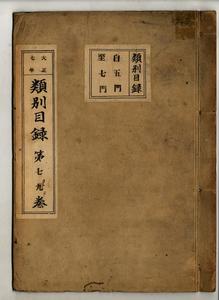 大正
七年
類別目録 第七九卷
類別目録
自五門
至七門